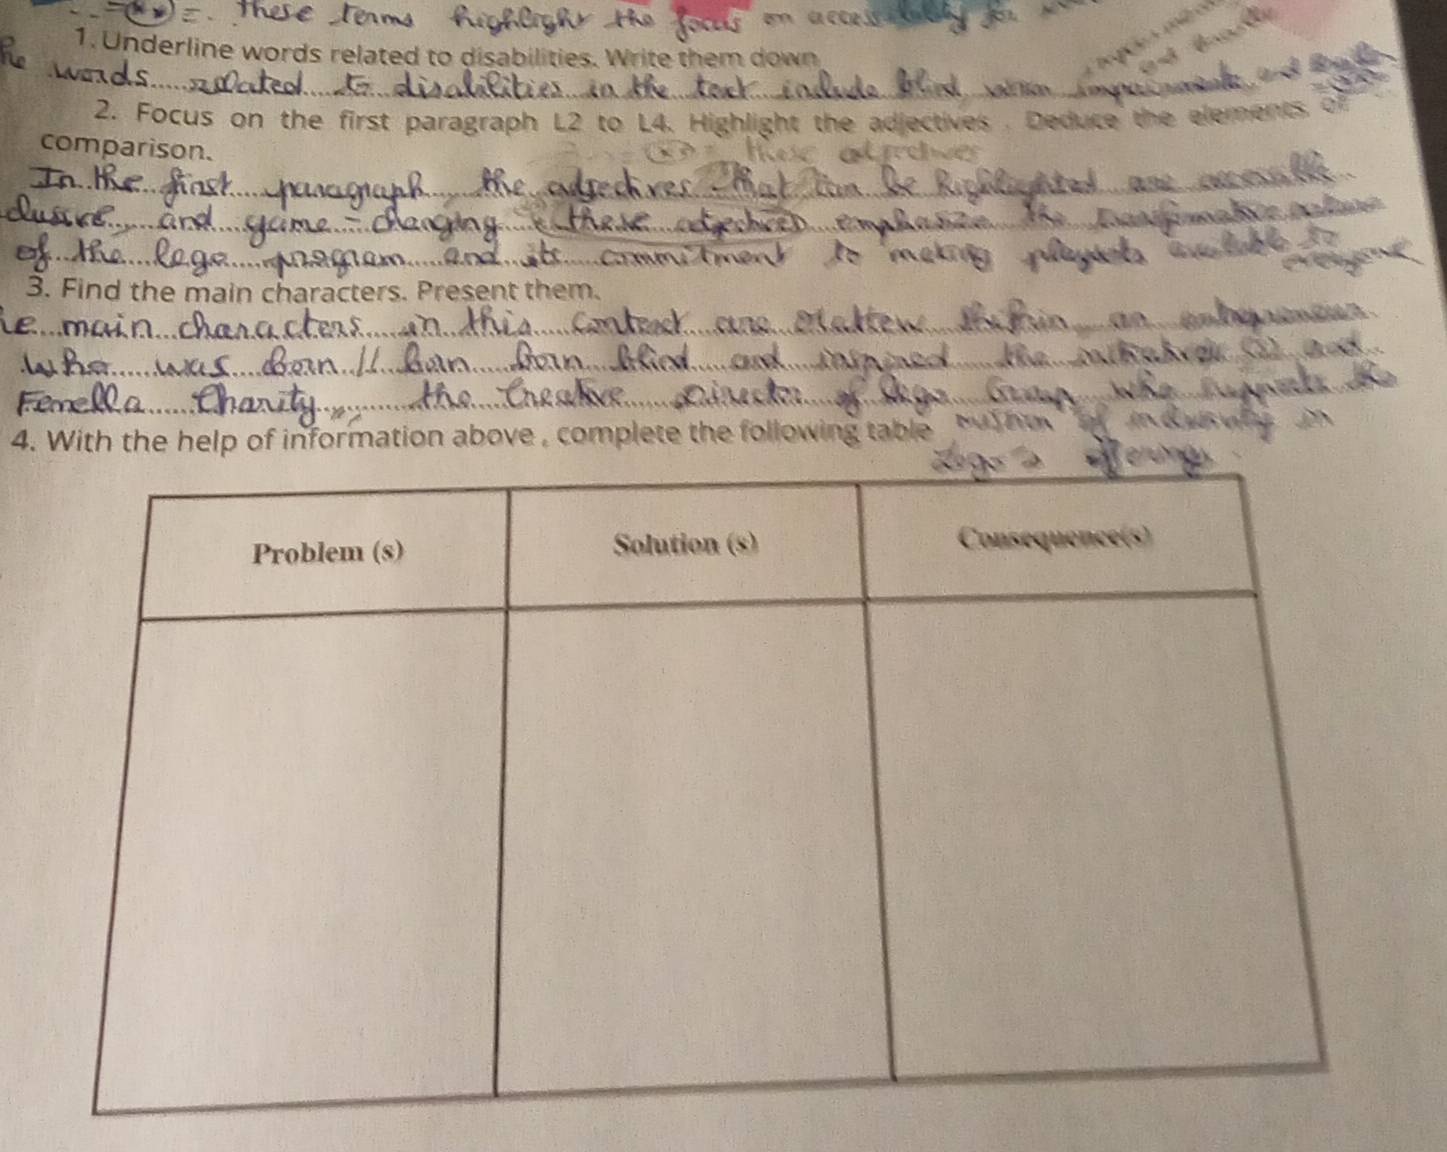 = (**) = . These terms highlight the focus on accessibility for
1. Underline words related to disabilities. Write them down
The words related to disabilities in the text include blind, vision impairments, and
2. Focus on the first paragraph L2 to L4. Highlight the adjectives . Deduce the elements of
comparison.
= (**) = these adjectives
In the first paragraph, the adjectives that can be highlighted are accessible
clusive, and game-changing these adjectives emphasize the transformative nature
of the lego program and its commitment to making playsets available to
everyone
3. Find the main characters. Present them.
he main characters in this context are Matthew Shifrin, an entrepreneur
who was born // born born blind and inspired the initiative (2) and
Fenella Charity, the Creative Director of Lego Group who supports the
mission of inclusivity in
4. With the help of information above , complete the following table
Lego's offerings.
Problem (s) Solution (s) Consequence(s)